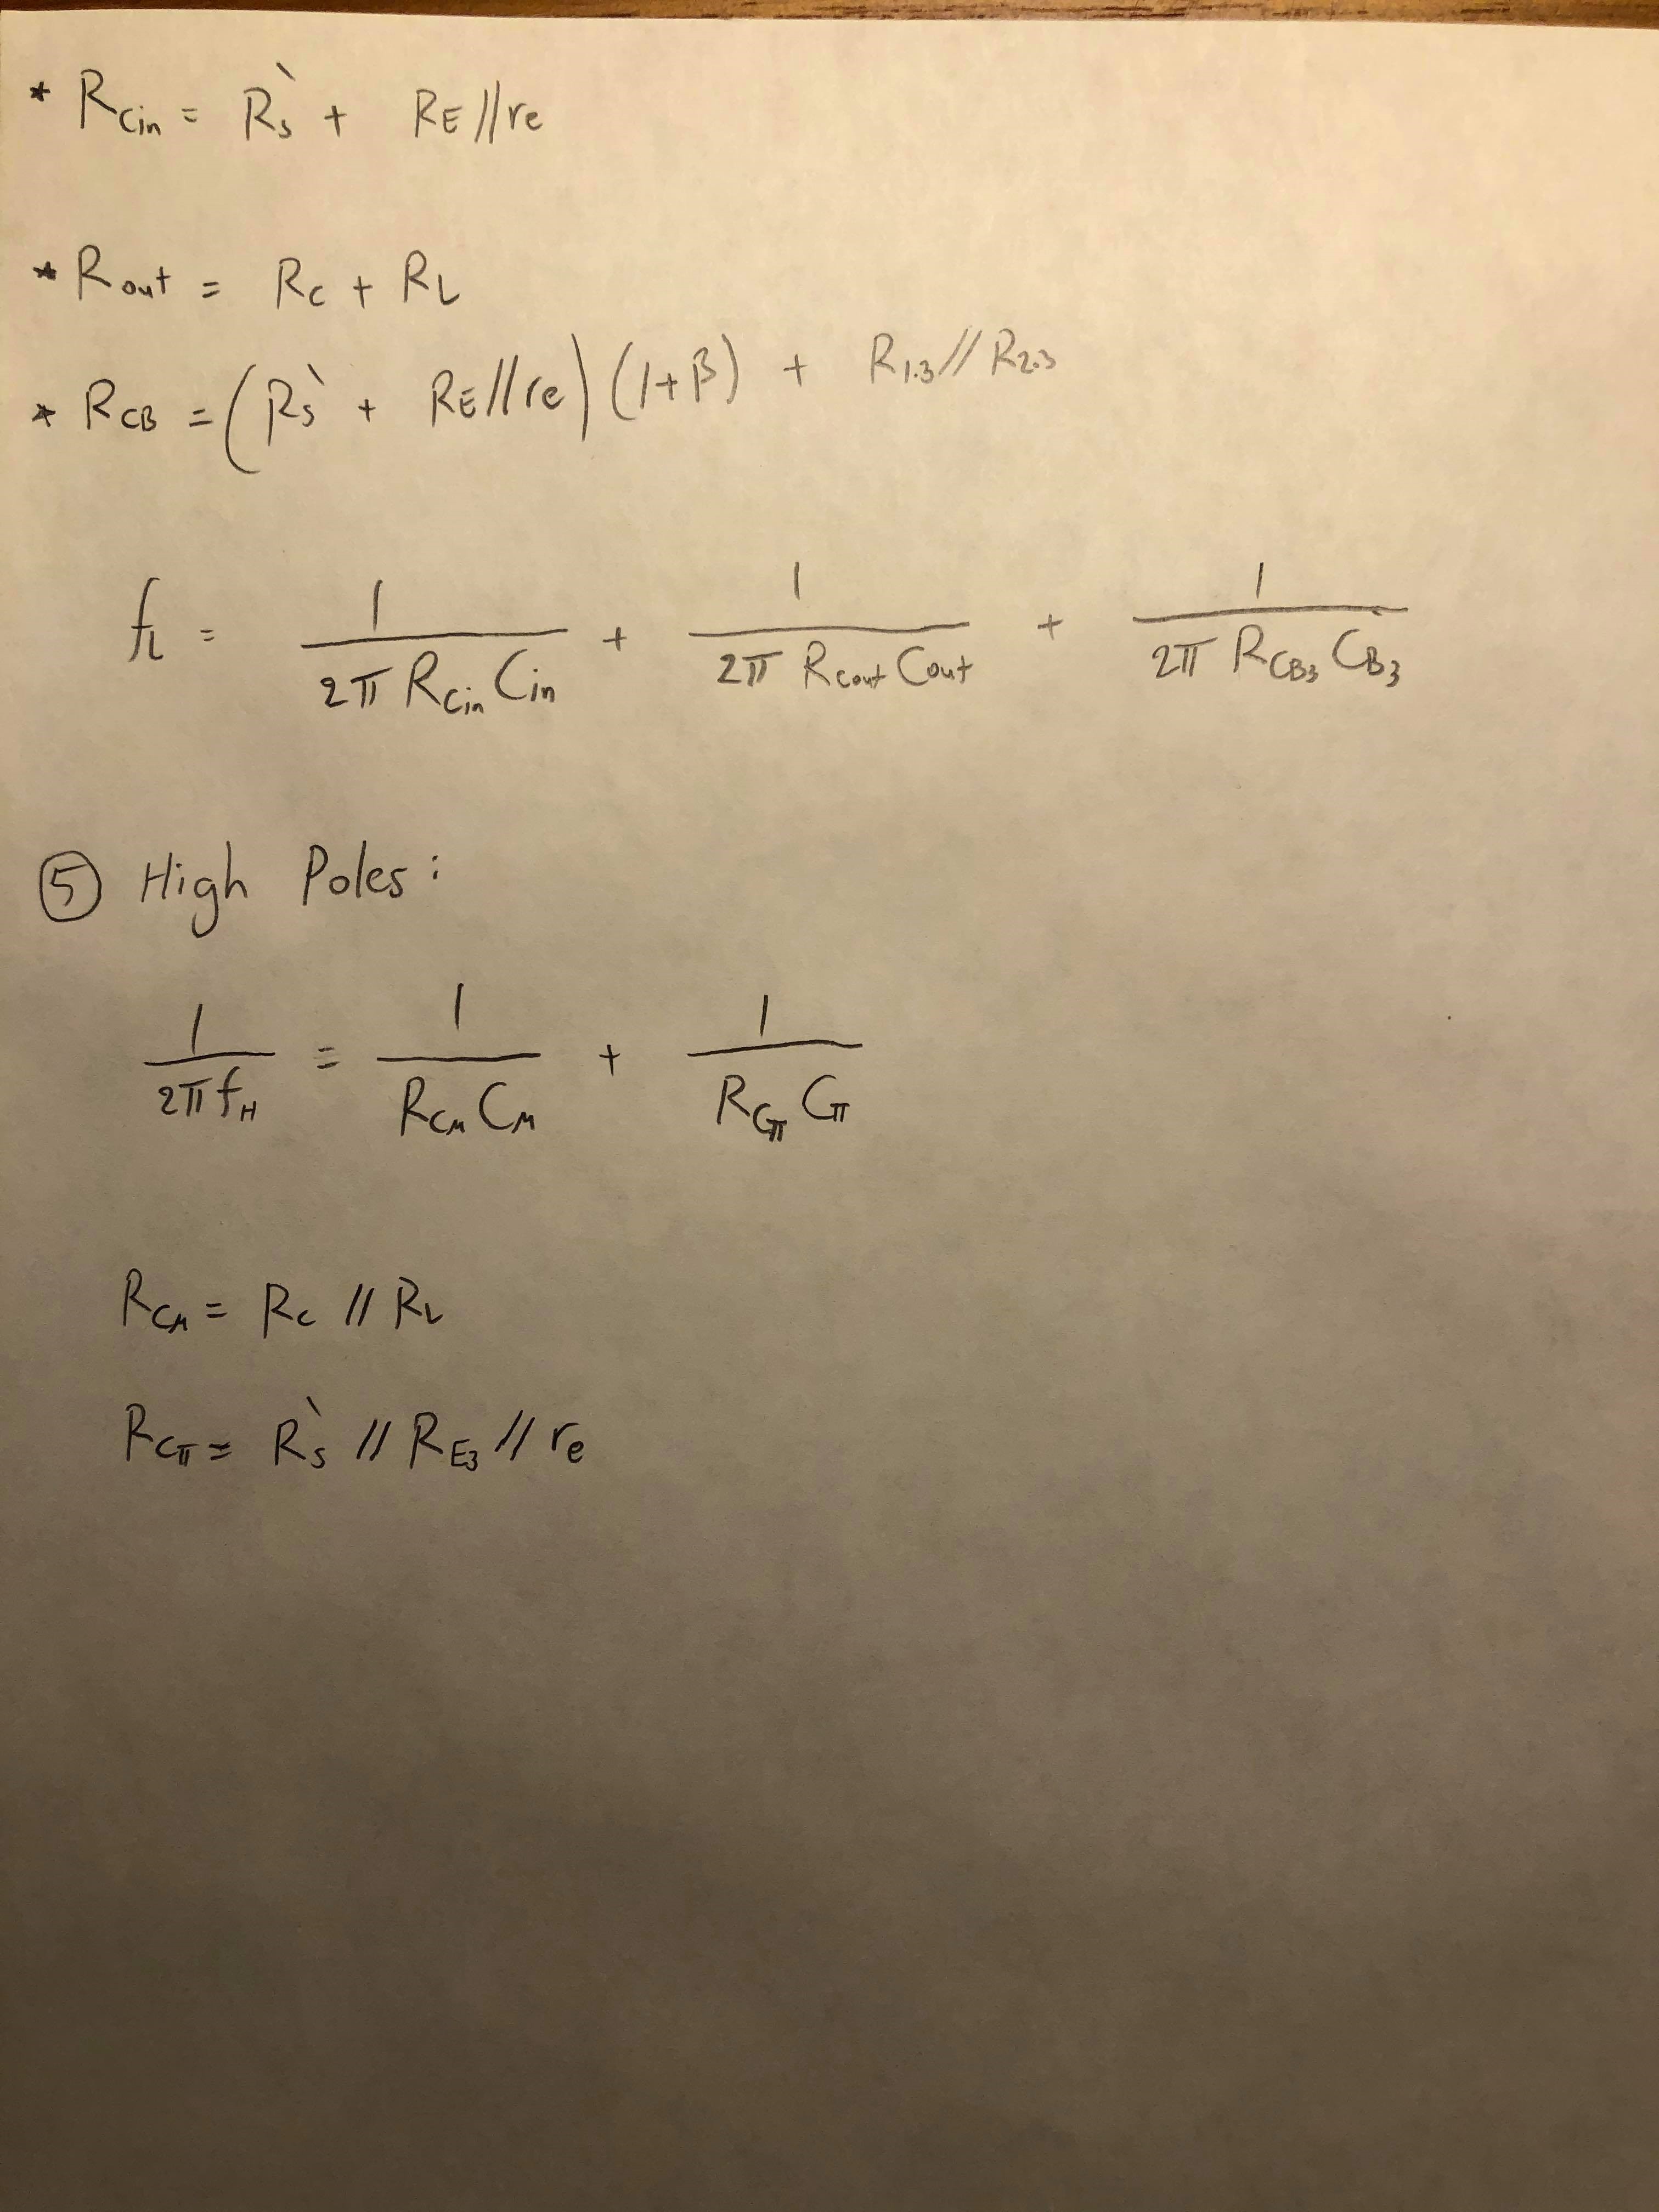 * R_Cin = R_s` + R_E//r_e
* R_out = R_C + R_L
* R_CB = (R_s` + R_E//r_e)(1+β) + R_1.3//R_2.3
f_L = 1/(2π R_Cin C_in) + 1/(2π R_Cout C_out) + 1/(2π R_CB3 C_B3)
⑤ High Poles:
1/(2π f_H) = 1/(R_Cμ C_μ) + 1/(R_Cπ C_π)
R_Cμ = R_C // R_L
R_Cπ = R_s` // R_E3 // r_e